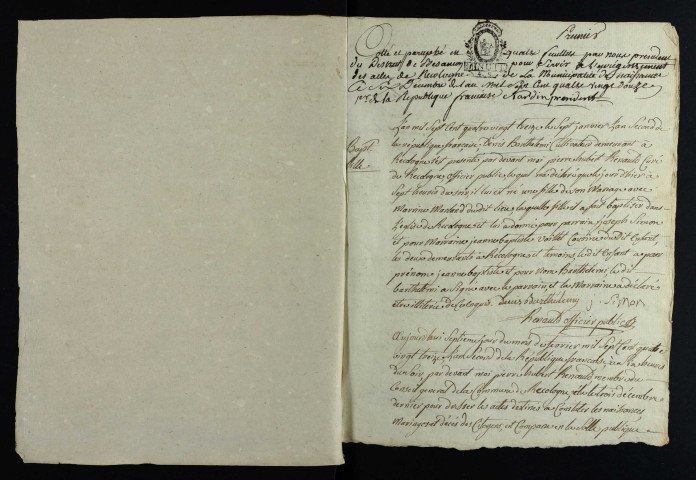 Premier
Cotte et paraphé en quatre feuilles par nous president
du District de Besançon pour servir a l'enregistrement
des actes de naissances de la Municipalité de Recologne
Decembre mil Sept Cent quatre vingt douze
1er de la Republique francaise president
L'an mil Sept Cent quatre vingt treize le Sept janvier L'an Second de
la république francaise Denis Barthelemi Cultivateur demeurant à
Recologne s'est presenté par devant moi pierre hubert Renauld Curé
de Recologne officier public, lequel m'a déclaré que le jour d'hier a
Sept heures du soir, il lui est né une fille de son Mariage avec
Bapt.
fille
dudit lieu, laquelle fille il a fait baptiser dans
l'église de Recologne et lui a donné pour parrain joseph Simon
et pour Marraine jeanne baptiste dudit Enfant,
les deux demeurants à Recologne, et temoins, ledit Enfant a pour
prénom jeanne baptiste et pour Nom Barthelemi ledit
barthelemi a Signé avec le parrain, et la Marraine a déclaré
être illiterée Denis Barthelemy j. Simon
Renauld officier public
Aujourd'hui Septieme jour du mois de fevrier mil Sept Cent quatre
vingt treize L'an Second de la République francaise, heures
du Soir par devant moi pierre hubert Renauld membre du
Conseil general de la Commune de Recologne, elu le trois decembre
dernier pour dresser les actes destinés a Constater les naissances
Mariages et décès des Citoyens, est Comparu en la Salle publique